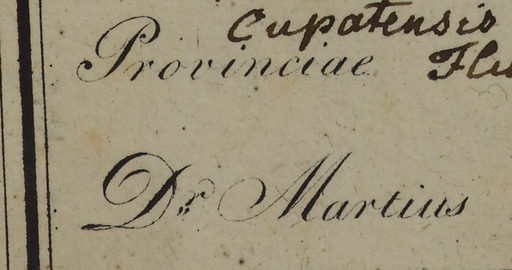 Cupatensis
Provinciae
Dr. Martius